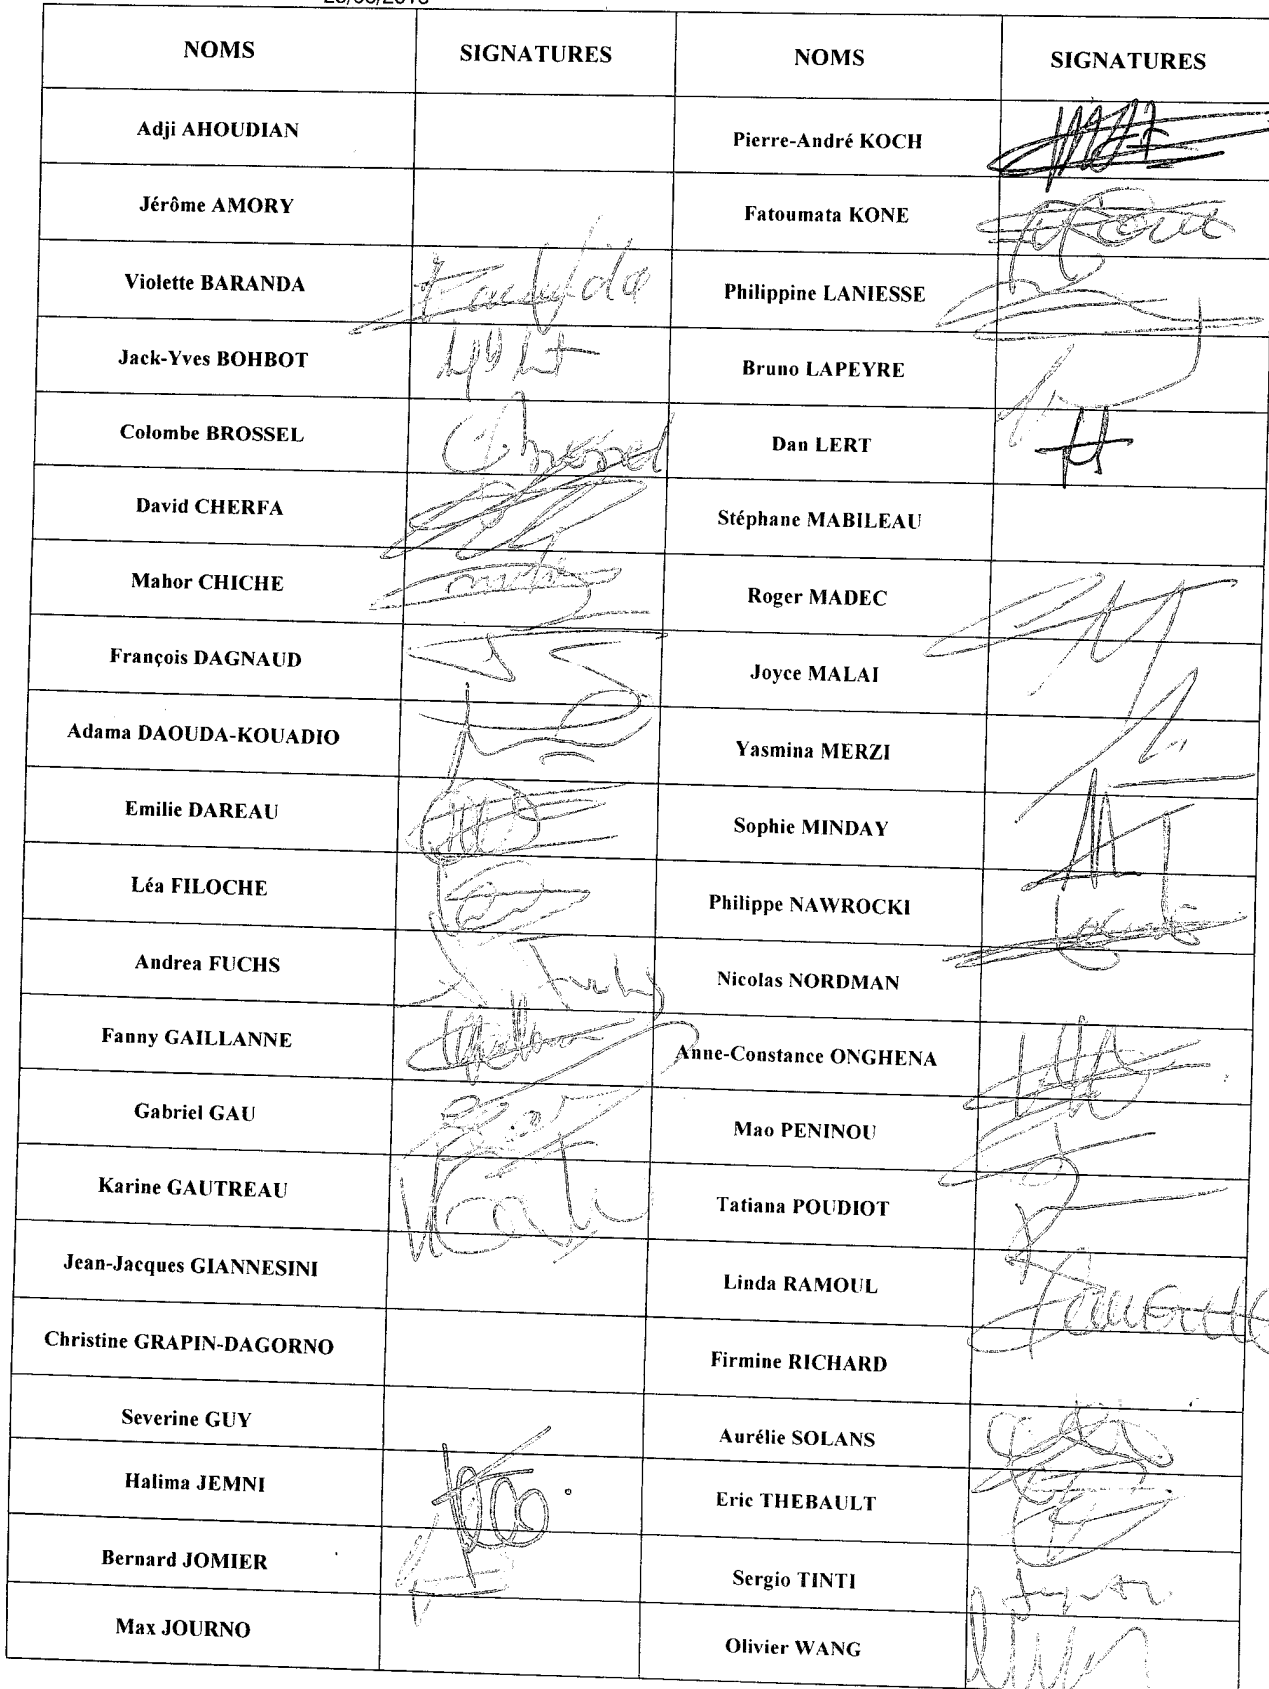 NOMS SIGNATURES NOMS SIGNATURES
Adji AHOUDIAN Pierre-André KOCH
Jérôme AMORY Fatoumata KONE
Violette BARANDA Philippine LANIESSE
Jack-Yves BOHBOT Bruno LAPEYRE
Colombe BROSSEL Dan LERT
David CHERFA Stéphane MABILEAU
Mahor CHICHE Roger MADEC
François DAGNAUD Joyce MALAI
Adama DAOUDA-KOUADIO Yasmina MERZI
Emilie DAREAU Sophie MINDAY
Léa FILOCHE Philippe NAWROCKI
Andrea FUCHS Nicolas NORDMAN
Fanny GAILLANNE Anne-Constance ONGHENA
Gabriel GAU Mao PENINOU
Karine GAUTREAU Tatiana POUDIOT
Jean-Jacques GIANNESINI Linda RAMOUL
Christine GRAPIN-DAGORNO Firmine RICHARD
Severine GUY Aurélie SOLANS
Halima JEMNI Eric THEBAULT
Bernard JOMIER Sergio TINTI
Max JOURNO Olivier WANG